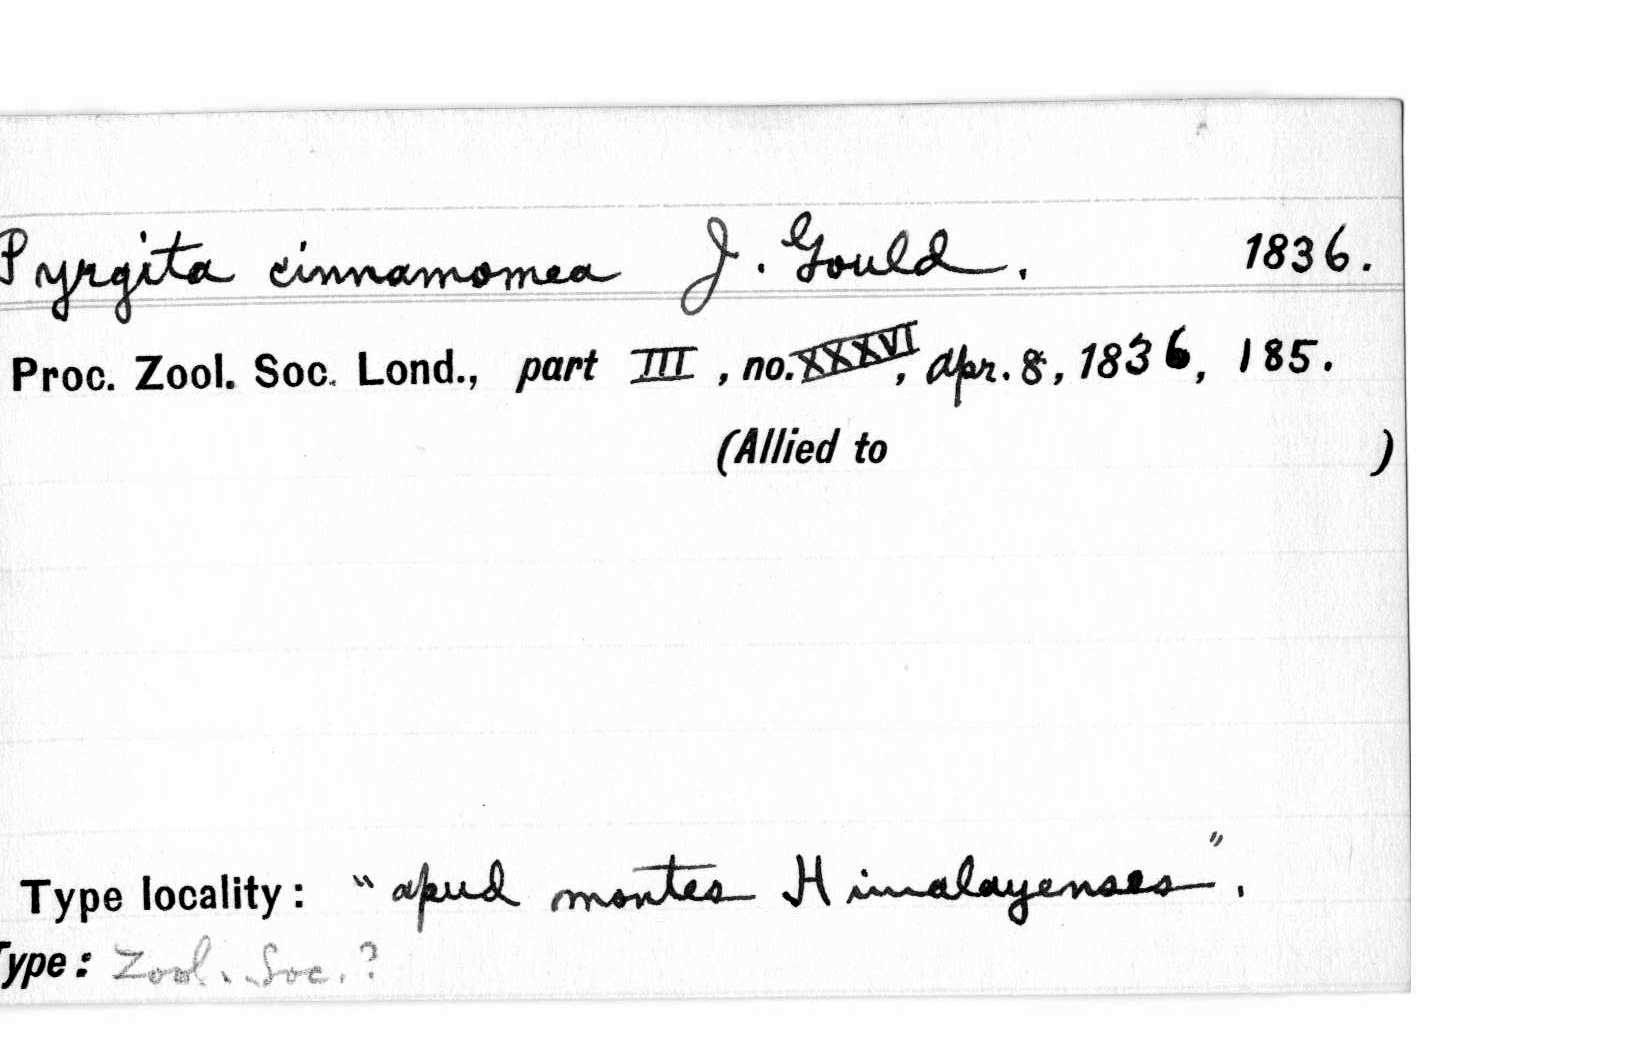 Pyrgita cinnamomea J. Gould. 1836.
Proc. Zool. Soc. Lond., part III, no. XXXVI, Apr. 8, 1836, 185.
(Allied to )
Type locality: "apud montes Himalayenses".
Type: Zool. Soc.?